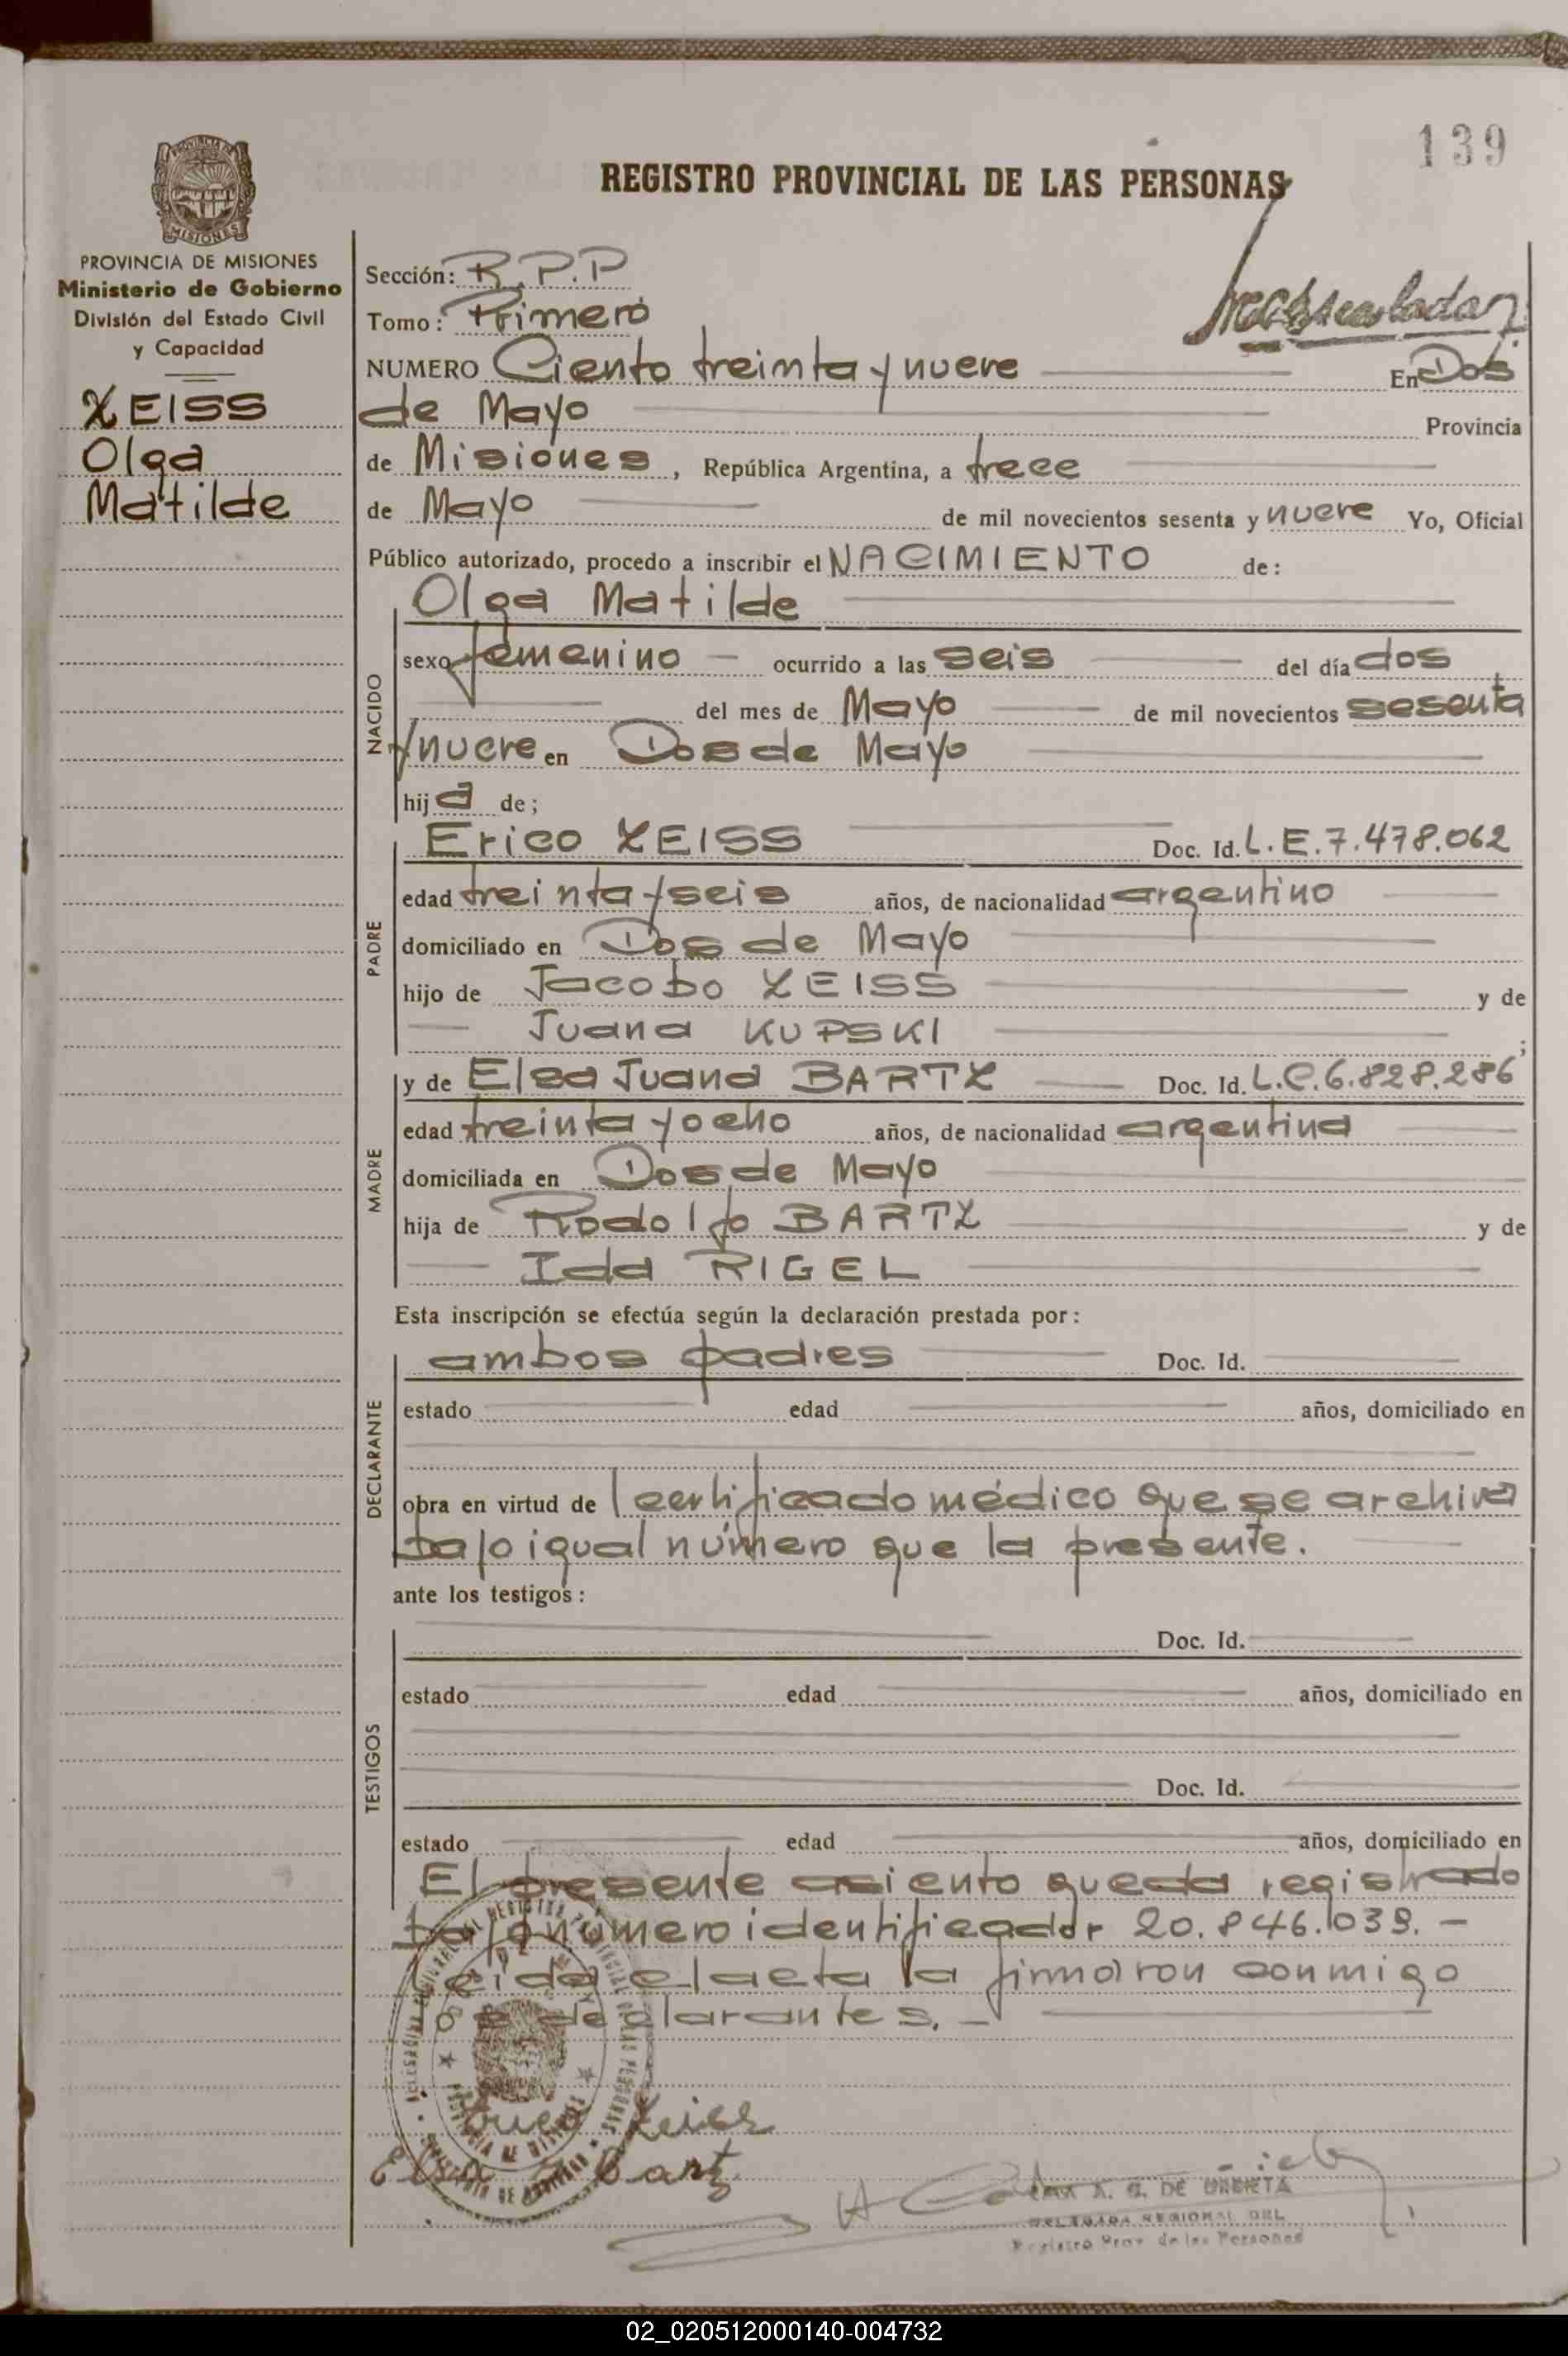 139
REGISTRO PROVINCIAL DE LAS PERSONAS
PROVINCIA DE
MISIONES
PROVINCIA DE MISIONES
Ministerio de Gobierno
División del Estado Civil
y Capacidad
ZEISS
Olga
Matilde
Sección: R.P.P
Tomo: Primero
NUMERO Ciento treinta y nueve En Dos
de Mayo Provincia
de Misiones, República Argentina, a trece
de Mayo de mil novecientos sesenta y nueve Yo, Oficial
Público autorizado, procedo a inscribir el NACIMIENTO de:
NACIDO
Olga Matilde
sexo femenino — ocurrido a las seis del día dos
del mes de Mayo de mil novecientos sesenta
y nueve en Dos de Mayo
hija de;
PADRE
Erico ZEISS Doc. Id. L.E.7.478.062
edad treinta y seis años, de nacionalidad argentino
domiciliado en Dos de Mayo
hijo de Jacobo ZEISS y de
Juana KUPSKI ;
MADRE
y de Elsa Juana BARTZ Doc. Id. L.C.6.828.286
edad treinta y ocho años, de nacionalidad argentina
domiciliada en Dos de Mayo
hija de Rodolfo BARTZ y de
Ida RIGEL
Esta inscripción se efectúa según la declaración prestada por:
DECLARANTE
ambos padres Doc. Id.
estado edad años, domiciliado en
obra en virtud de certificado médico que se archiva
bajo igual número que la presente.
ante los testigos:
TESTIGOS
Doc. Id.
estado edad años, domiciliado en
Doc. Id.
estado edad años, domiciliado en
El presente asiento queda registrado
bajo número identificador 20.846.039.—
Leida el acta la firmaron conmigo
los declarantes.—
Zeiss
Elsa J Bartz
A. G. DE URRIETA
DELEGADA REGIONAL DEL
Registro Prov. de las Personas
02_020512000140-004732